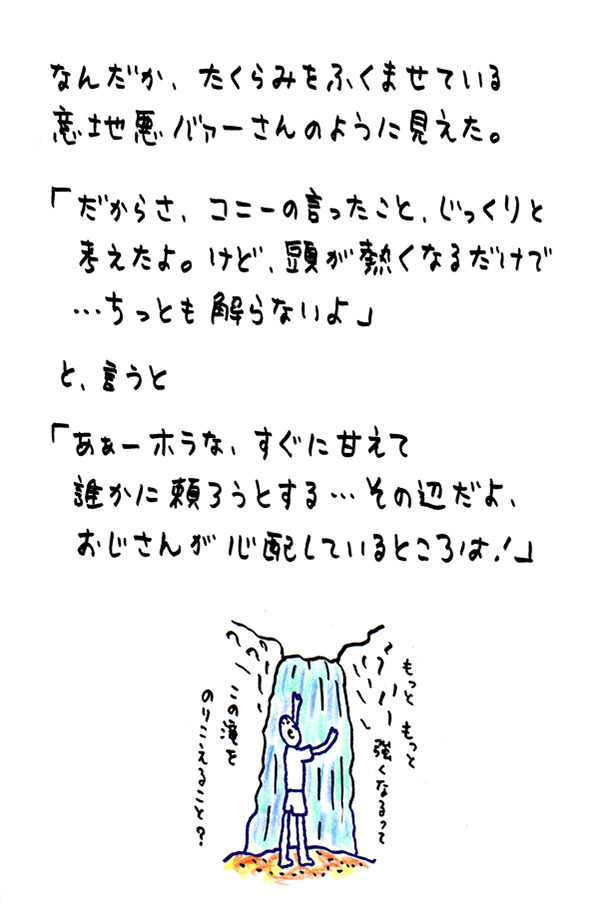 なんだか、たくらみをふくませている
意地悪バァーさんのように見えた。
「だからさ、コニーの言ったこと、じっくりと
考えたよ。けど、頭が熱くなるだけで
…ちっとも解らないよ」
と、言うと
「あぁーホラな、すぐに甘えて
誰かに頼ろうとする…その辺だよ、
おじさんが心配しているところは!」
もっと もっと
強くなるって
この滝を
のりこえること?